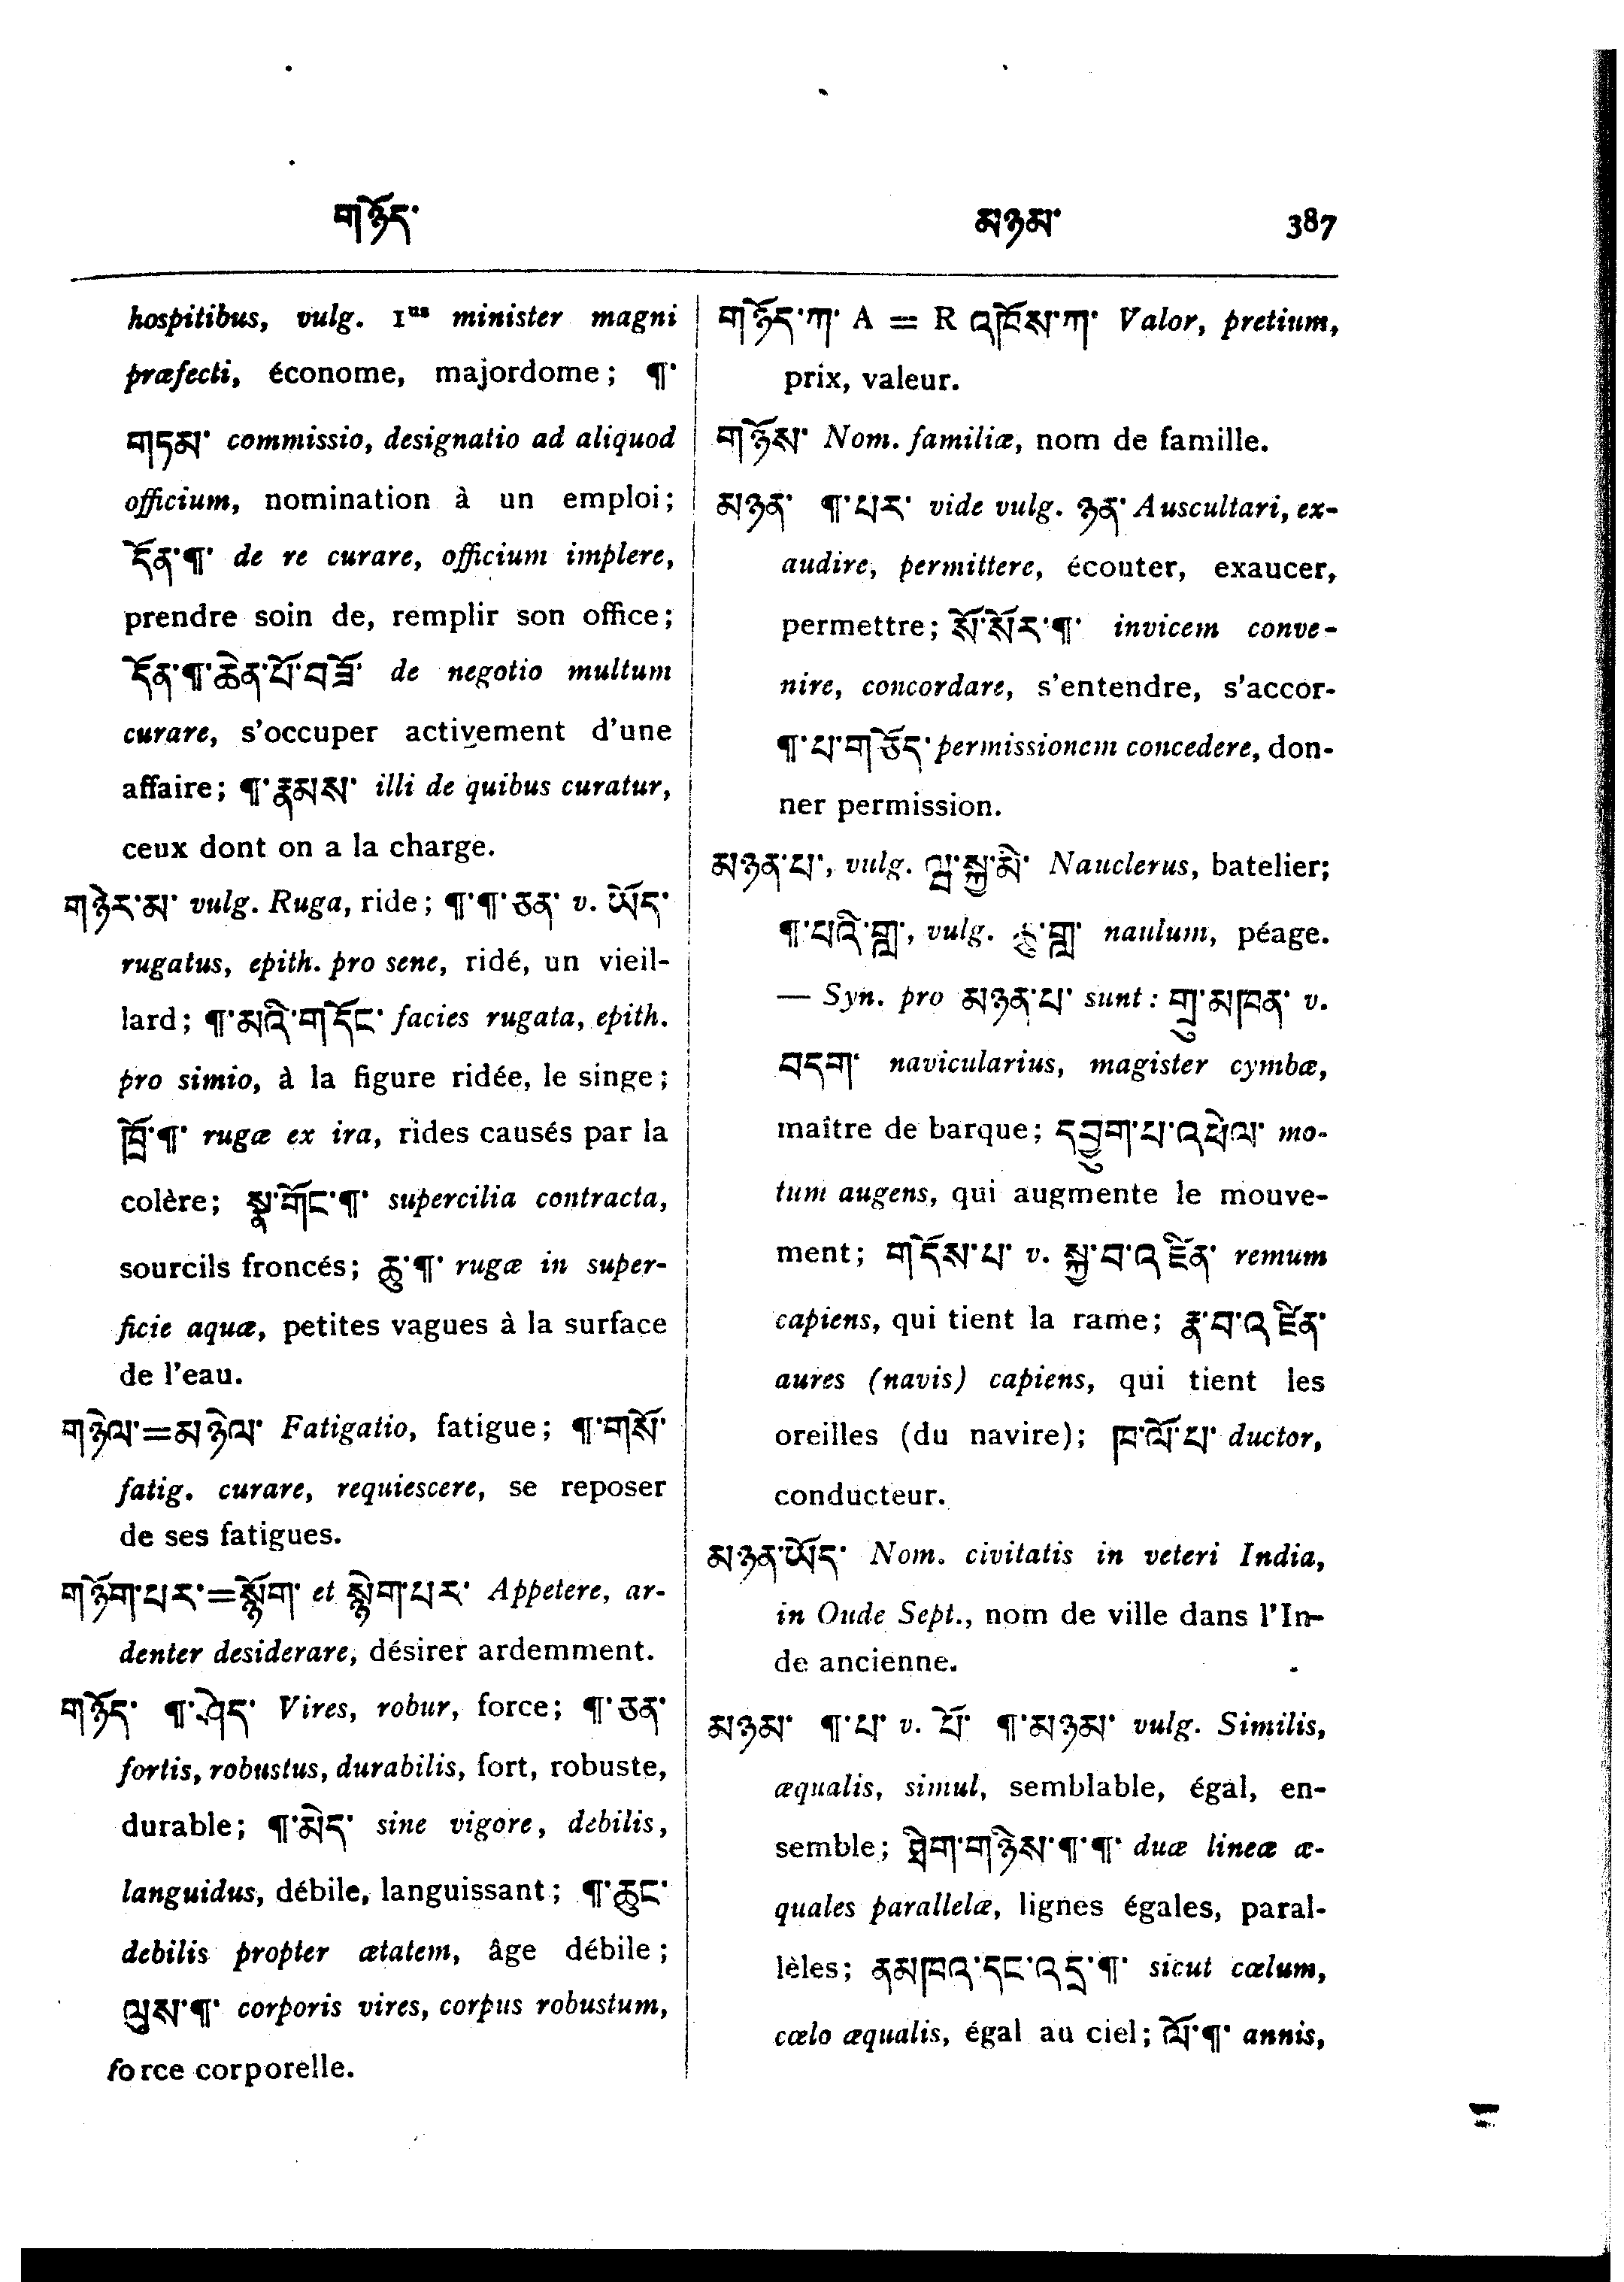 གཉོད་ མཉམ་ 387
hospitibus, vulg. 1us minister magni
præfecti, économe, majordome; ¶་
གཏམ་ commissio, designatio ad aliquod
officium, nomination à un emploi;
དོན་¶་ de re curare, officium implere,
prendre soin de, remplir son office;
དོན་¶་ཆེན་པོ་བཟོ་ de negotio multum
curare, s'occuper activement d'une
affaire; ¶་རྣམས་ illi de quibus curatur,
ceux dont on a la charge.
གཉེར་མ་ vulg. Ruga, ride; ¶་¶་ཅན་ v. ཡོད་
rugatus, epith. pro sene, ridé, un vieil-
lard; ¶་མའི་གདོང་ facies rugata, epith.
pro simio, à la figure ridée, le singe;
ཁྲོ་¶་ rugæ ex ira, rides causés par la
colère; སྣ་གོང་¶་ supercilia contracta,
sourcils froncés; ཆུ་¶་ rugæ in super-
ficie aquæ, petites vagues à la surface
de l'eau.
གཉེལ་=མཉེལ་ Fatigatio, fatigue; ¶་གསོ་
fatig. curare, requiescere, se reposer
de ses fatigues.
གཉོག་པར་=སྙོག་ et སྙེག་པར་ Appetere, ar-
denter desiderare, désirer ardemment.
གཉོད་ ¶་ཤེད་ Vires, robur, force; ¶་ཅན་
fortis, robustus, durabilis, fort, robuste,
durable; ¶་མེད་ sine vigore, debilis,
languidus, débile, languissant; ¶་ཆུང་
debilis propter ætatem, âge débile;
ལུས་¶་ corporis vires, corpus robustum,
force corporelle.
གཉོད་ཀ་ A = R འཁོས་ཀ་ Valor, pretium,
prix, valeur.
གཉོས་ Nom. familiæ, nom de famille.
མཉན་ ¶་པར་ vide vulg. ཉན་ Auscultari, ex-
audire, permittere, écouter, exaucer,
permettre; སོ་སོར་¶་ invicem conve-
nire, concordare, s'entendre, s'accor-
¶་པ་གཅོད་ permissionem concedere, don-
ner permission.
མཉན་པ་, vulg. ལྦ་སྐྱ་མི་ Nauclerus, batelier;
¶་པའི་གླ་, vulg. ཆུ་གླ་ naulum, péage.
— Syn. pro མཉན་པ་ sunt: གྲུ་མཁན་ v.
བདག་ navicularius, magister cymbæ,
maître de barque; དབྱུག་པ་འཕེལ་ mo-
tum augens, qui augmente le mouve-
ment; གདོས་པ་ v. སྐྱ་བ་འཛིན་ remum
capiens, qui tient la rame; རྣ་བ་འཛིན་
aures (navis) capiens, qui tient les
oreilles (du navire); ཁ་ལོ་པ་ ductor,
conducteur.
མཉན་ཡོད་ Nom. civitatis in veteri India,
in Oude Sept., nom de ville dans l'In-
de ancienne.
མཉམ་ ¶་པ་ v. པོ་ ¶་མཉམ་ vulg. Similis,
æqualis, simul, semblable, égal, en-
semble; ཐིག་གཉིས་¶་¶་ duæ lineæ æ-
quales parallelæ, lignes égales, paral-
lèles; ནམཁའ་དང་འདྲ་¶་ sicut cœlum,
cœlo æqualis, égal au ciel; ལོ་¶་ annis,